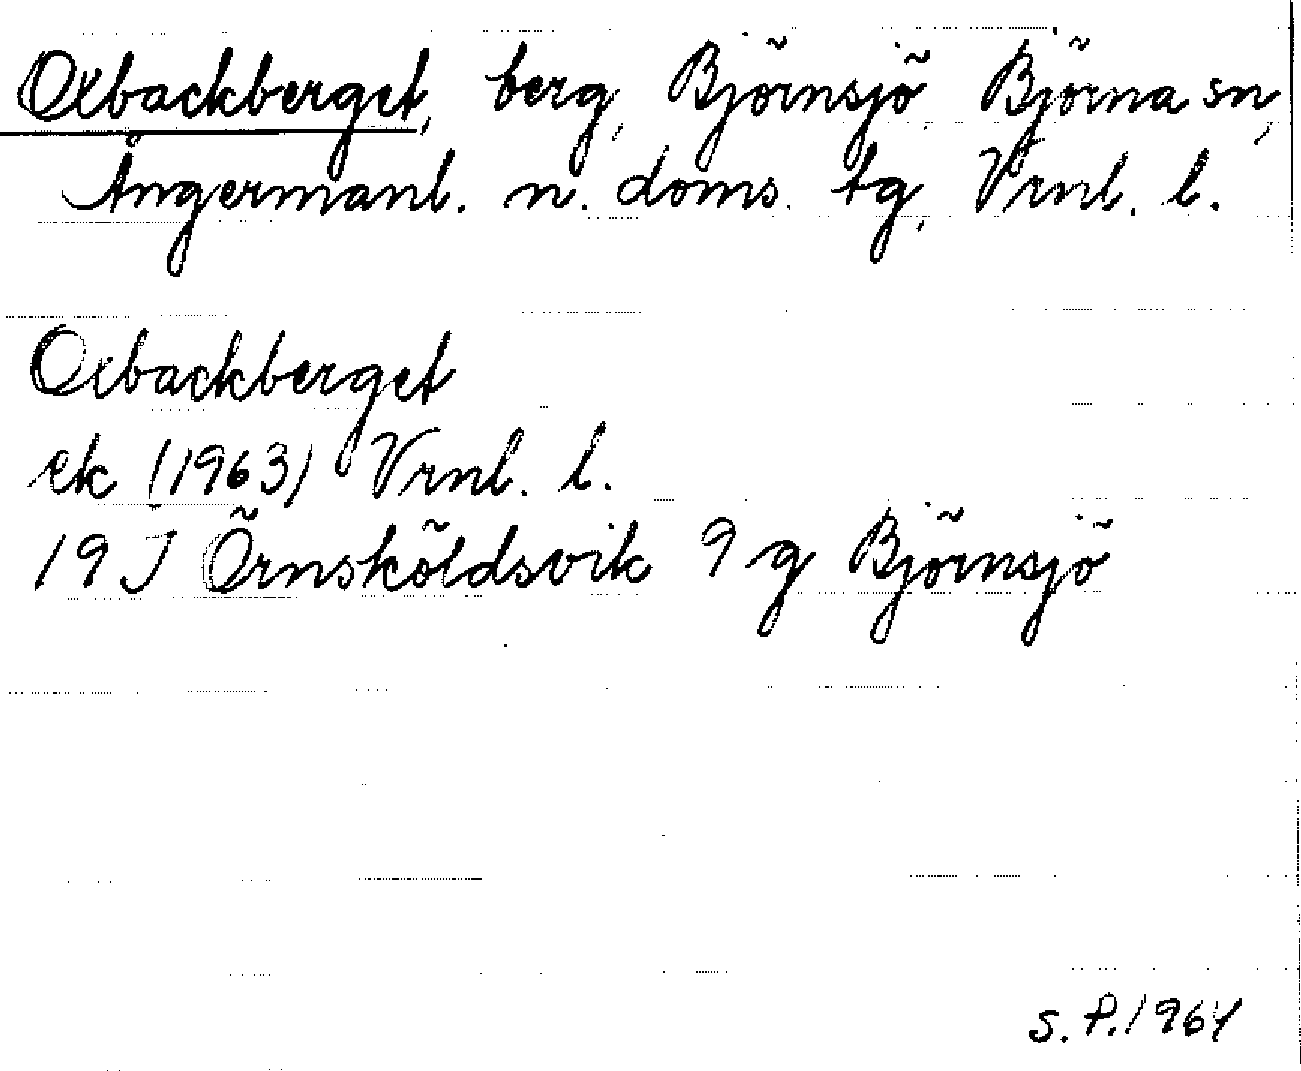 Oxbackberget, berg, Björnsjö, Björna sn,
Ångermanl. n. doms. tg, Vrnl. l.
Oxbackberget
ek (1963) Vrnl. l.
19 J Örnsköldsvik 9 g Björnsjö
S. P. 1964